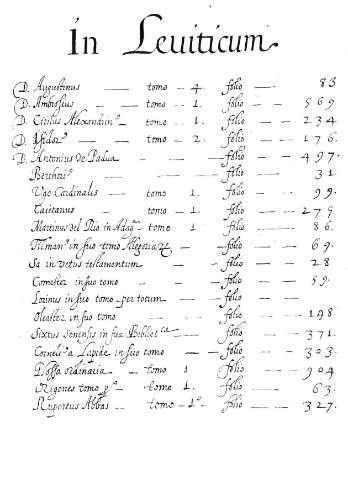 In Leuiticum
D. Augustinus — tomo - 4. folio — 83
D. Ambrosius — tomo - 1. folio — 569
D. Cirilus Alexandrinº — tomo — 1. folio — 234
D. Isidorº — tomo — 2. folio — 176.
D. Antonius de Padua — folio — 497.
folio — 31
Vgo Cardinalis — tomo 1. folio — 99.
Caietanus — tomo 1 folio — 275
Martinus del Rio in Adag — tomo 1. folio — 86.
in suo tomo folio — 69.
Sa in vetus testamentum — folio — 28
Comestor in suo tomo — folio — 59.
Lorinus in suo tomo per totum — folio
Oleaster in suo tomo — folio — 198
Sixtus Senensis in sua Biblioteca — folio — 371.
Corneliº a Lapide in suo tomo — folio — 303.
Glossa ordinaria — tomo 1 folio — 904
Origenes tomo pº — tomo 1. folio — 63.
Rupertus Abbas — tomo — 1º. folio — 327.